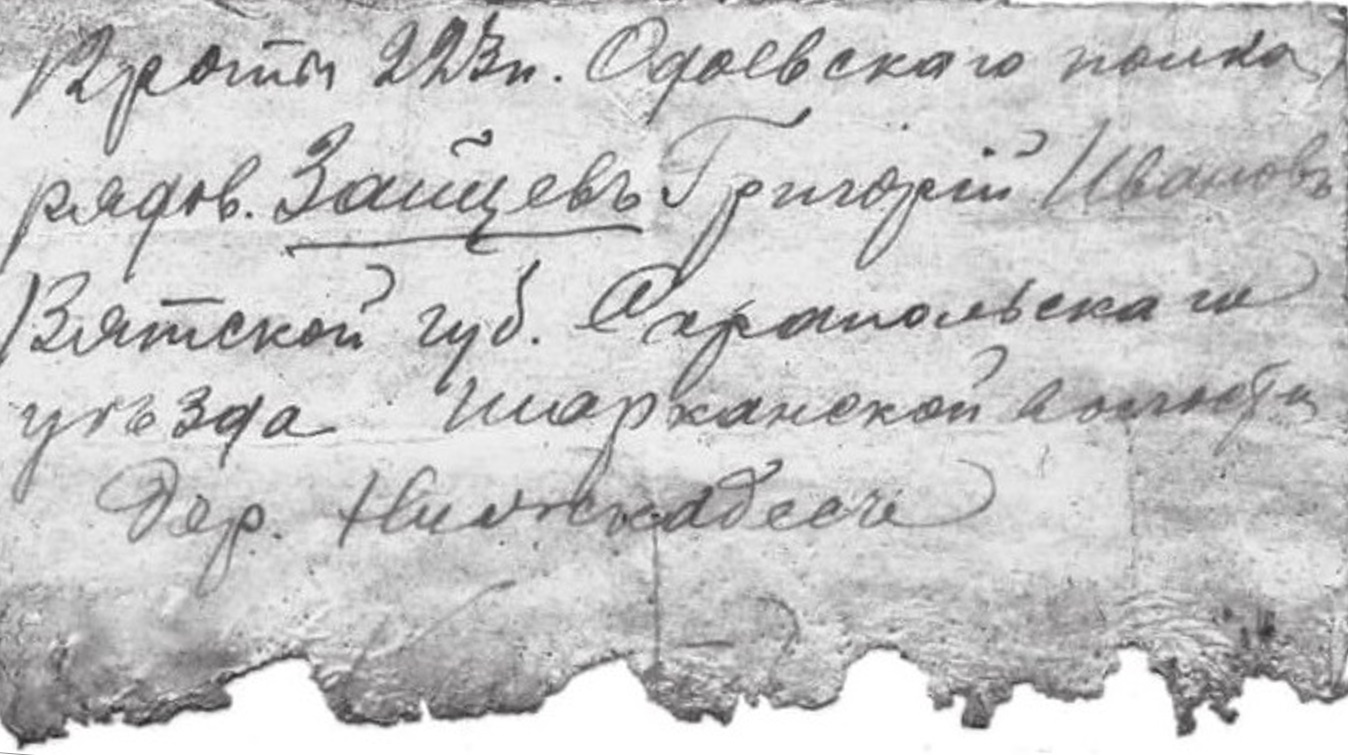 12 роты 223 п. Одоевскаго полка
рядов. Зайцевъ Григорій Ивановъ
Вятской губ. Сарапольскаго
уѣзда Шарканской волости
Дер.